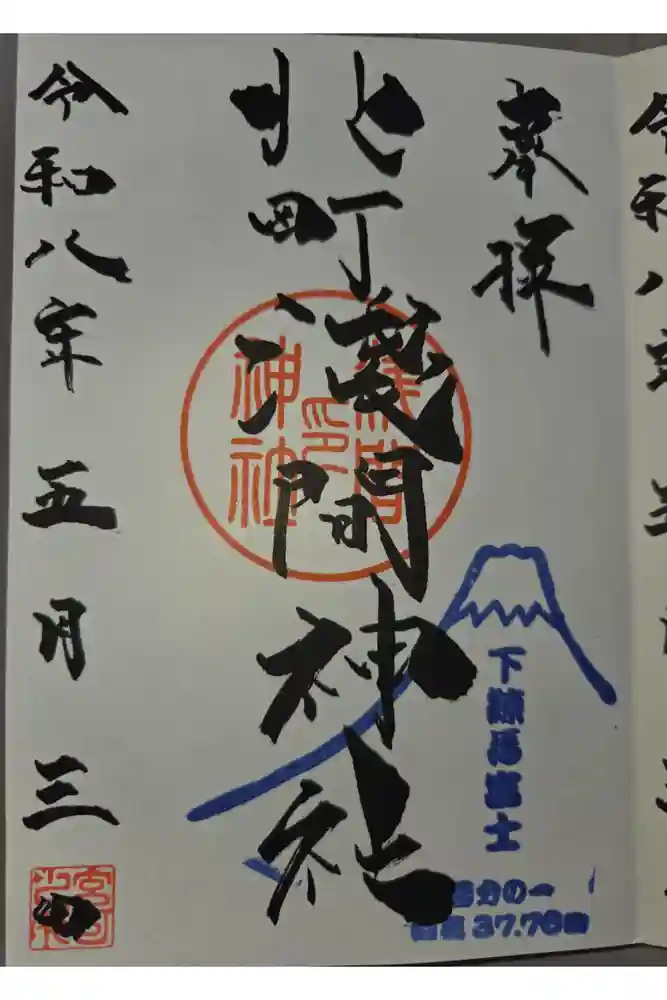 奉拝
北町浅間神社
浅間
神社
印
下練馬富士
百分の一
37.76m
令和八年五月三日